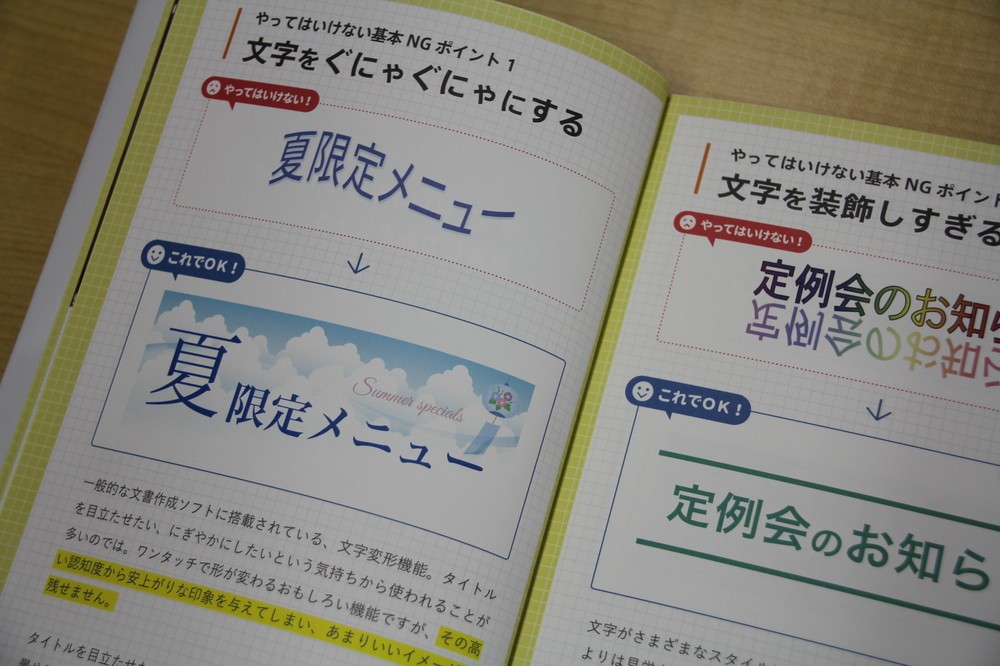 やってはいけない基本NGポイント1
文字をぐにゃぐにゃにする
やってはいけない！
夏限定メニュー
これでOK！
夏限定メニュー
Summer specials
一般的な文書作成ソフトに搭載されている、文字変形機能。タイトル
を目立たせたい、にぎやかにしたいという気持ちから使われることが
多いのでは。ワンタッチで形が変わるおもしろい機能ですが、その高
い認知度から安上がりな印象を与えてしまい、あまりいいイメー
残せません。
タイトルを目立たせた
やってはいけない基本NGポイント
文字を装飾しすぎる
やってはいけない！
定例会のお知ら
定例会のお知ら
これでOK！
定例会のお知ら
文字がさまざまなスタイル
よりは見栄